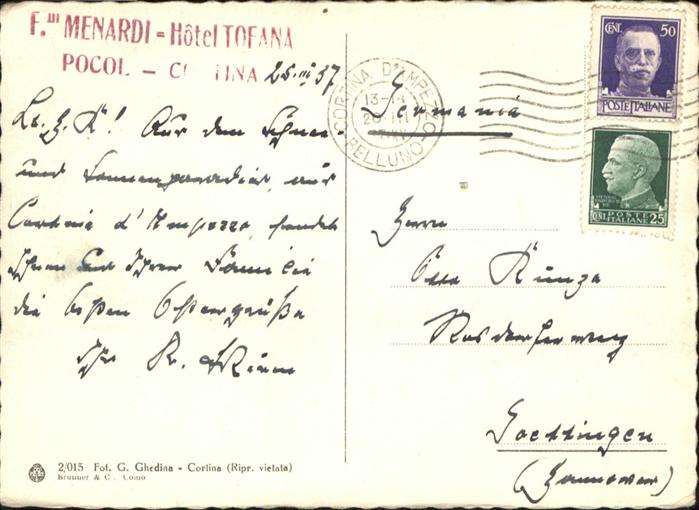 F.lli MENARDI = Hôtel TOFANA
POCOL – CORTINA 25.III.37
Lb. H. K! Aus dem Schnee-
und Sonnenparadies, aus
Cortina d'Ampezzo, sendet
Ihnen und Ihrer Familie
die besten Ostergrüße
Ihr R.
CORTINA D'AMPEZZO
BELLUNO
Germania
CENT. 50
POSTE ITALIANE
POSTE
ITALIANE
CENT 25
Herrn
Otto Kunze
Rosdorferweg
Goettingen
(Hannover)
2/015 Fot. G. Ghedina - Cortina (Ripr. vietata)
Brunner & C. Como